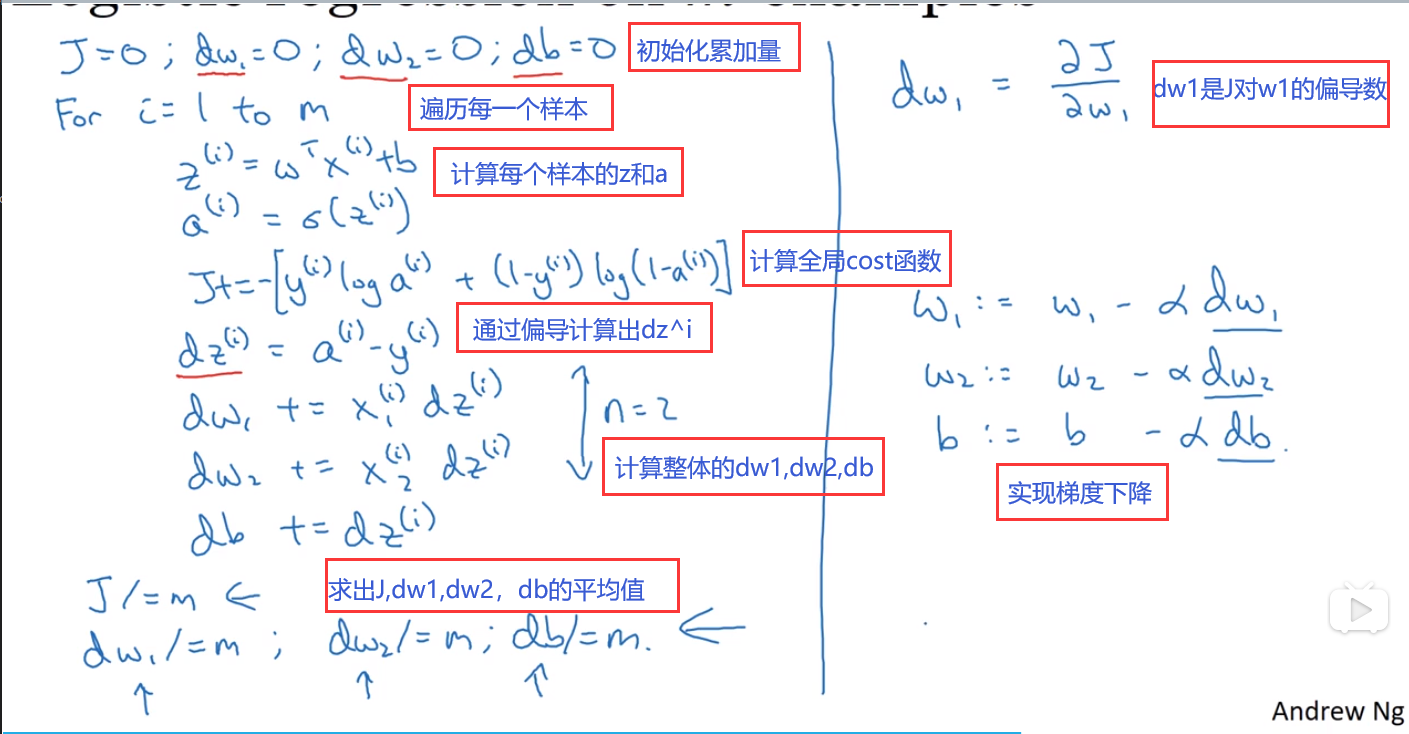 Logistic regression on m examples
J=0; dw₁=0; dw₂=0; db=0
初始化累加量
For i=1 to m
遍历每一个样本
z⁽ⁱ⁾ = ωᵀx⁽ⁱ⁾+b
计算每个样本的z和a
a⁽ⁱ⁾ = σ(z⁽ⁱ⁾)
J+=-[y⁽ⁱ⁾ log a⁽ⁱ⁾ + (1-y⁽ⁱ⁾) log(1-a⁽ⁱ⁾)]
计算全局cost函数
dz⁽ⁱ⁾ = a⁽ⁱ⁾-y⁽ⁱ⁾
通过偏导计算出dz^i
dw₁ += x₁⁽ⁱ⁾ dz⁽ⁱ⁾
dw₂ += x₂⁽ⁱ⁾ dz⁽ⁱ⁾
n=2
计算整体的dw1,dw2,db
db += dz⁽ⁱ⁾
J/=m ←
求出J,dw1,dw2，db的平均值
dw₁/=m; dw₂/=m; db/=m. ←
↑ ↑ ↑
dw₁ = ∂J/∂w₁
dw1是J对w1的偏导数
w₁ := w₁ - α dw₁
w₂ := w₂ - α dw₂
b := b - α db.
实现梯度下降
Andrew Ng